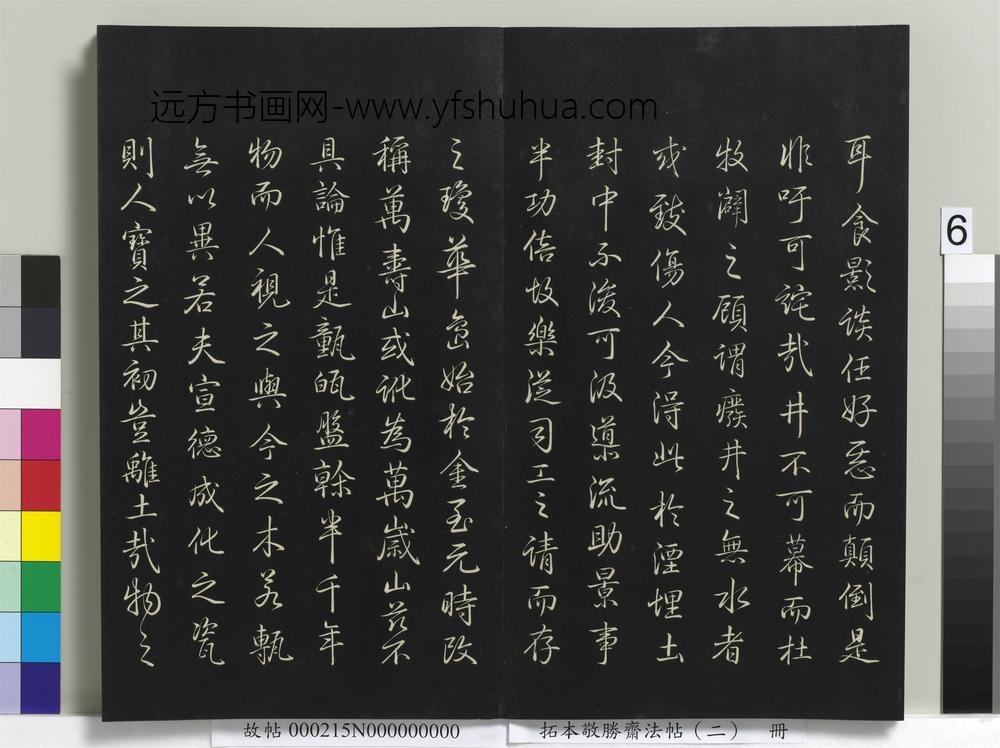 远方书画网-www.yfshuhua.com
耳食影談任好惡而顛倒是
非吁可詫哉井不可幕而杜
牧闢之顧謂癈井之無水者
或致傷人今得此於湮埋土
封中不浚可汲導流助景事
半功倍故樂從司工之請而存
之瓊華島始於金至元時改
稱萬壽山或訛為萬歲山茲不
具論惟是甎㼾盤幹半千年
物而人視之與今之木若甎
無以異若夫宣德成化之瓷
則人寶之其初豈離土哉物之
6
故帖 000215N000000000
拓本敬勝齋法帖（二） 冊